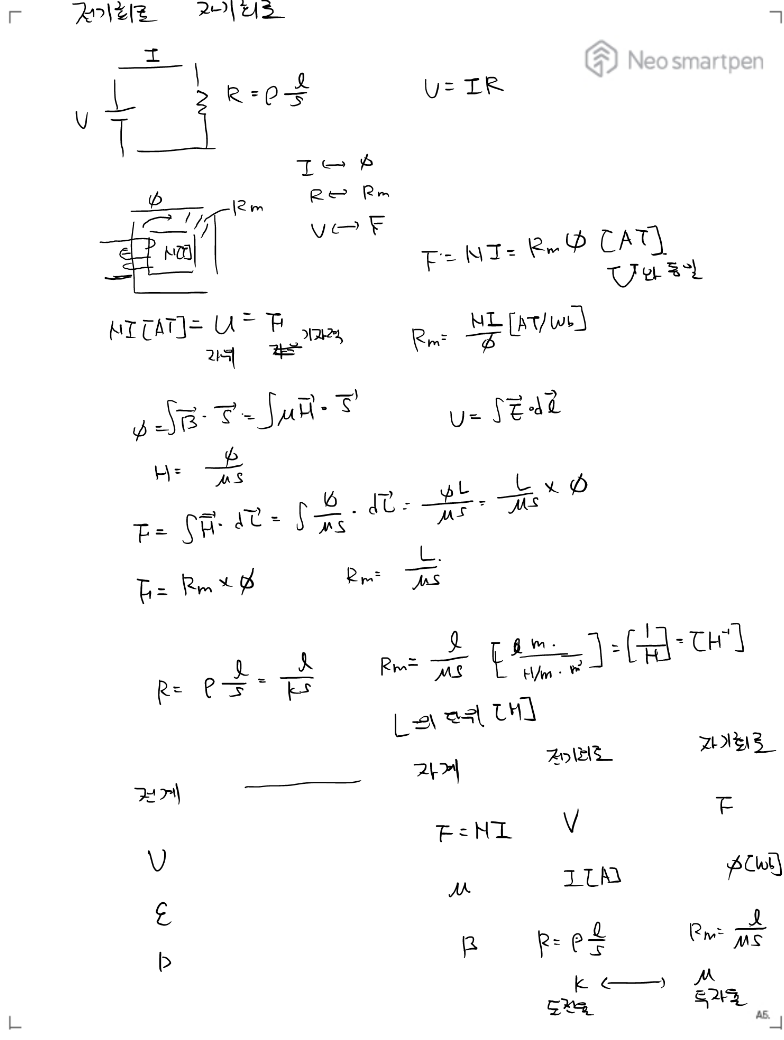 전기회로 자기회로
Neo smartpen
I
V
R = ρ l/S
V = IR
I ↔ φ
R ↔ Rm
V ↔ F
φ
Rm
NI
F = NI = Rm φ [AT]
U와 동일
NI [AT] = U = F
자위 기자력
Rm = NI/φ [AT/Wb]
φ = ∫B⃗ · S⃗ = ∫μH⃗ · S⃗
V = ∫E⃗ · dl⃗
H = φ/μS
F = ∫H⃗ · dL⃗ = ∫ φ/μS · dL⃗ = φL/μS = L/μS × φ
F = Rm × φ
Rm = L/μS
R = ρ l/S = l/kS
Rm = l/μS [m/(H/m · m²)] = [1/H] = [H⁻¹]
L의 단위 [H]
전계 자계 전기회로 자기회로
V F = NI V F
ε μ I [A] φ [Wb]
D B R = ρ l/S Rm = l/μS
k ↔ μ
도전율 투자율
A5.